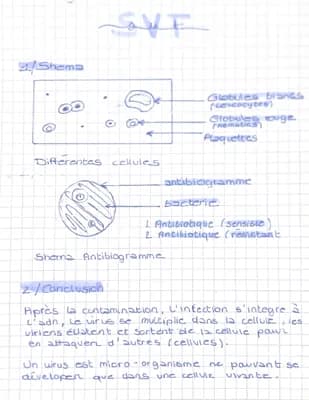 SVT
1°/ Shema
Globules blancs
(Leucocytes)
Globules rouge
(hematies)
Plaquettes
Différentes cellules
antibiogramme
bacterie
1. Antibiotique (sensible)
2. Antibiotique (résistant
Shema Antibiogramme
2°/ Conclusion
Après la contamination, L'infection s'integre à
L'adn, Le virus se multiplie dans la cellule, les
viriens éclatent et sortent de la cellule pour
en attaquer d'autres (cellules).
Un virus est micro-organisme ne pouvant se
développer que dans une cellule vivante.